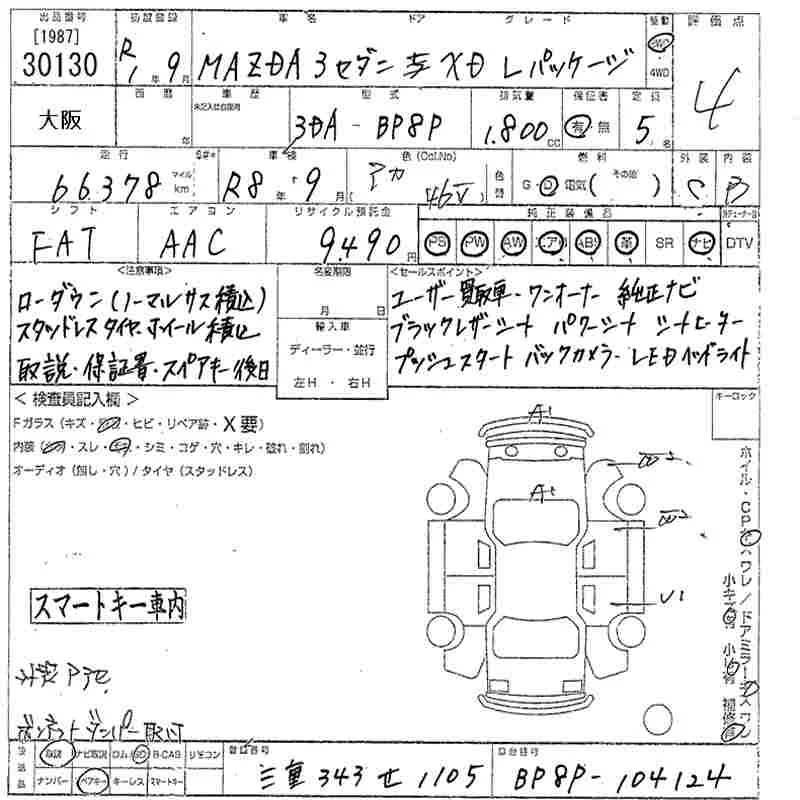 出品番号 初度登録 車名 ドア グレード 駆動 評価点
[1987]
30130 R1年9月 MAZDA 3セダン XD Lパッケージ 2WD 4WD 4
大阪 西暦 年 車歴 未記入は自家用 型式 排気量 保証書 定員
3DA-BP8P 1.800cc 有・無 5名
走行 マイル km 車検 色(Col.No) 色替 燃料 外装 内装
66,378 R8年9月 アカ (46V) G・D 電気( その他 ) C B
シフト エアコン リサイクル預託金 純正装備品
FAT AAC 9490円 PS PW AW エアB ABS 革 SR ナビ DTV
<注意事項> 名変期限 <セールスポイント>
ローダウン(ノーマルサス積込)
スタッドレスタイヤホイール積込
取説・保証書・スペアキー後日
月 日
輸入車
ディーラー・並行
左H・右H
ユーザー買取車・ワンオーナー 純正ナビ
ブラックレザーシート パワーシート シートヒーター
プッシュスタート バックカメラ LEDヘッドライト
<検査員記入欄> キーロック
Fガラス(キズ・・ヒビ・リペア跡・X要)
内装(・スレ・・シミ・コゲ・穴・キレ・破れ・割れ)
オーディオ(無し・穴)/タイヤ(スタッドレス)
A1
A1
W2
W2
U1
スマートキー車内
ボンネットダンパー取付
後送品 取説 ナビ取説 ロム/SD B-CAS リモコン
ナンバー スペアキー キーレス スマートキー
登録番号 車台番号
三重 343 せ 1105 BP8P-104124